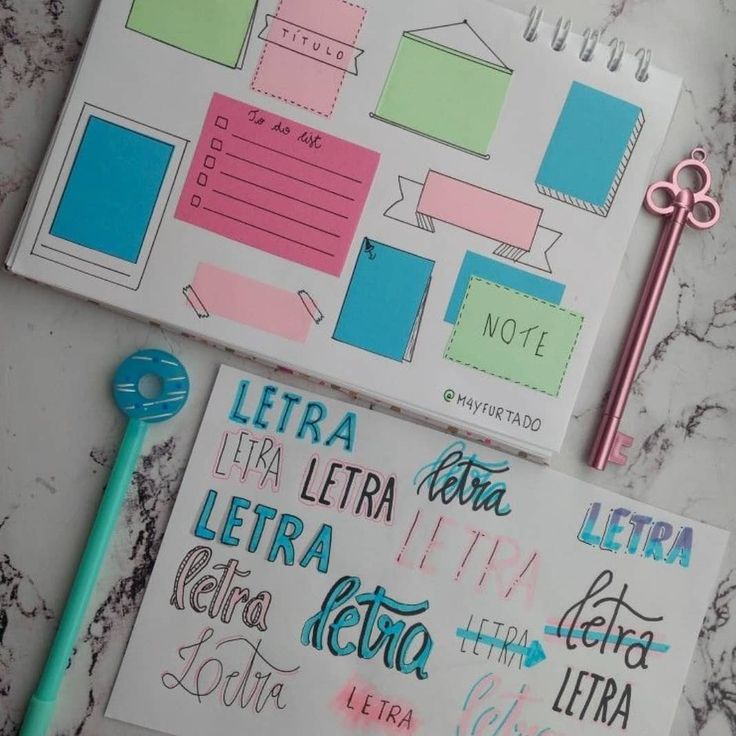 TÍTULO
To do list
NOTE
@M4YFURTADO
LETRA
LETRA
LETRA
letra
LETRA
LETRA
LETRA
letra
letra
LETRA
letra
Letra
LETRA
LETRA
letra